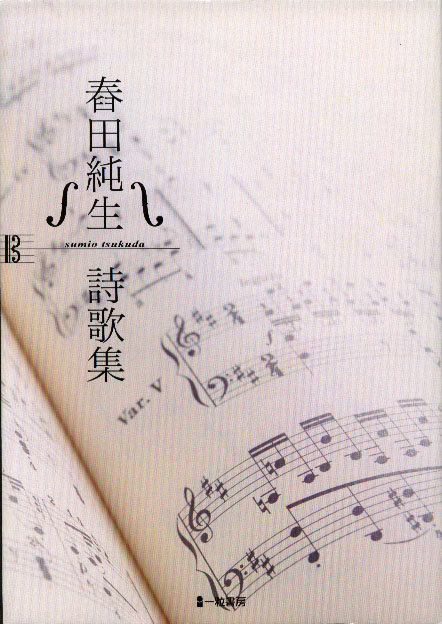 舂田純生
sumio tsukuda
詩歌集
Var. V
一粒書房